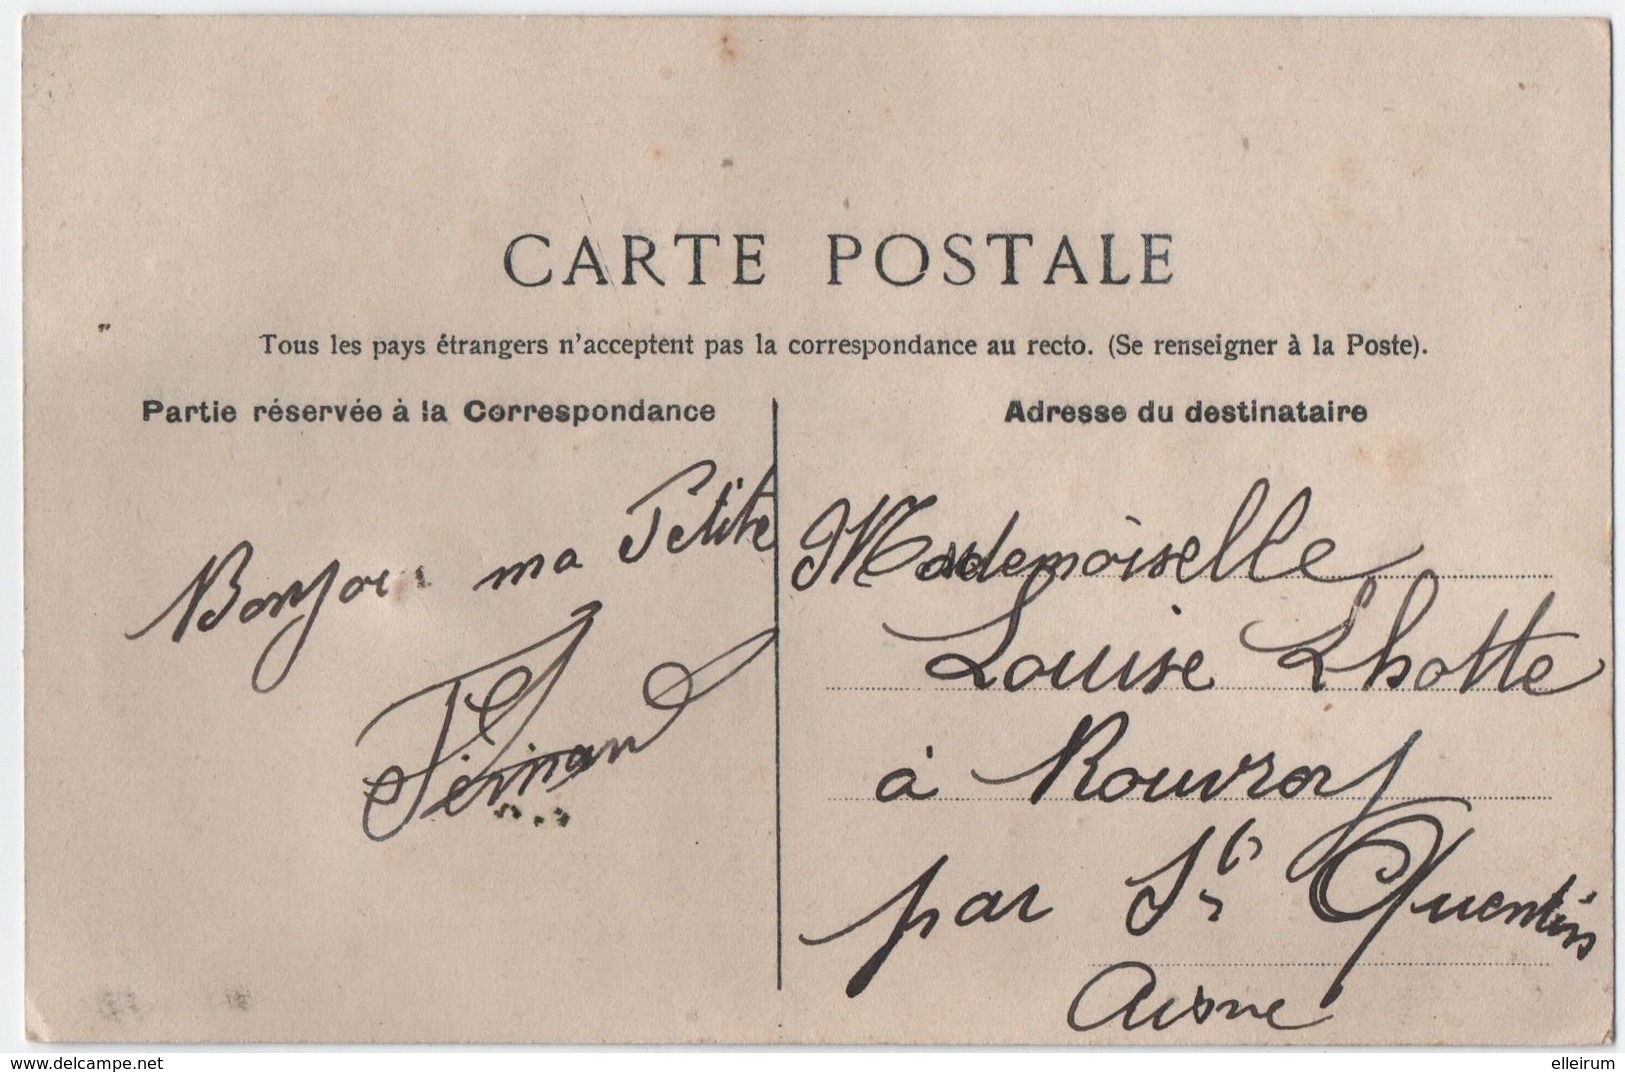 CARTE POSTALE
Tous les pays étrangers n'acceptent pas la correspondance au recto. (Se renseigner à la Poste).
Partie réservée à la Correspondance
Bonjour ma Petite
Fernand
Adresse du destinataire
Mademoiselle
Louise Lhotte
à Rouvroy
par St Quentin
Aisne
delcampe.net
elleirum